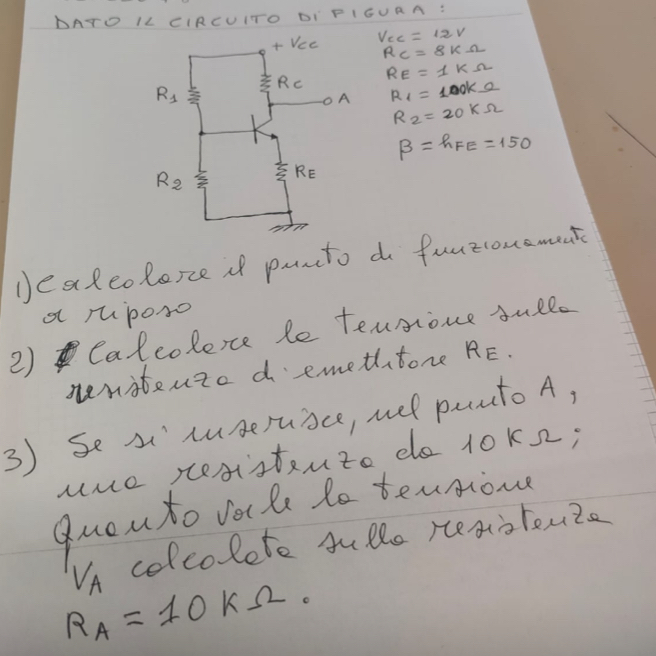 DATO IL CIRCUITO DI FIGURA:
+ Vcc
Rc
A
R1
R2
RE
Vcc = 12V
Rc = 8KΩ
RE = 1KΩ
R1 = 100KΩ
R2 = 20KΩ
β = hFE = 150
1) Calcolare il punto di funzionamento
a riposo
2) Calcolare la tensione sulla
resistenza di emettitore RE.
3) Se si inserisce, nel punto A,
una resistenza da 10KΩ;
Quanto vale la tensione
VA calcolata sulla resistenza
RA = 10KΩ.